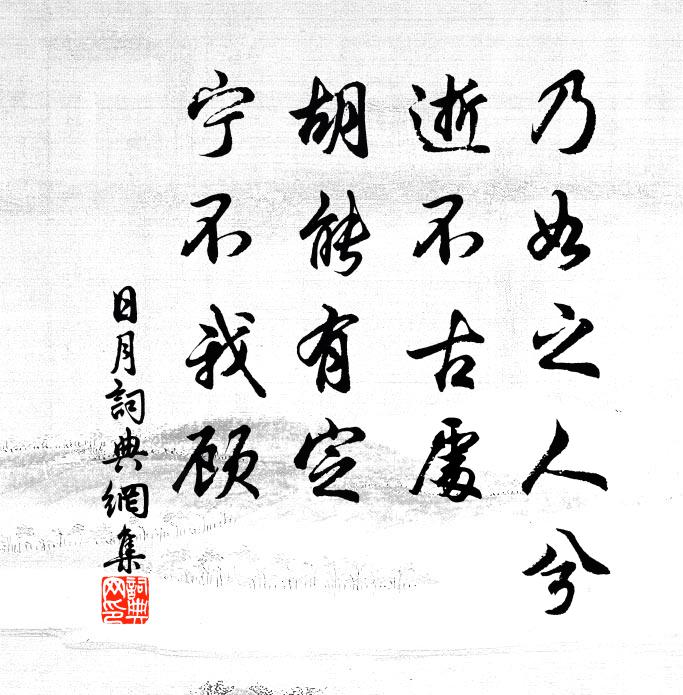 乃如之人兮
逝不古處
胡能有定
宁不我顾
日月詞典網集
詞典网印